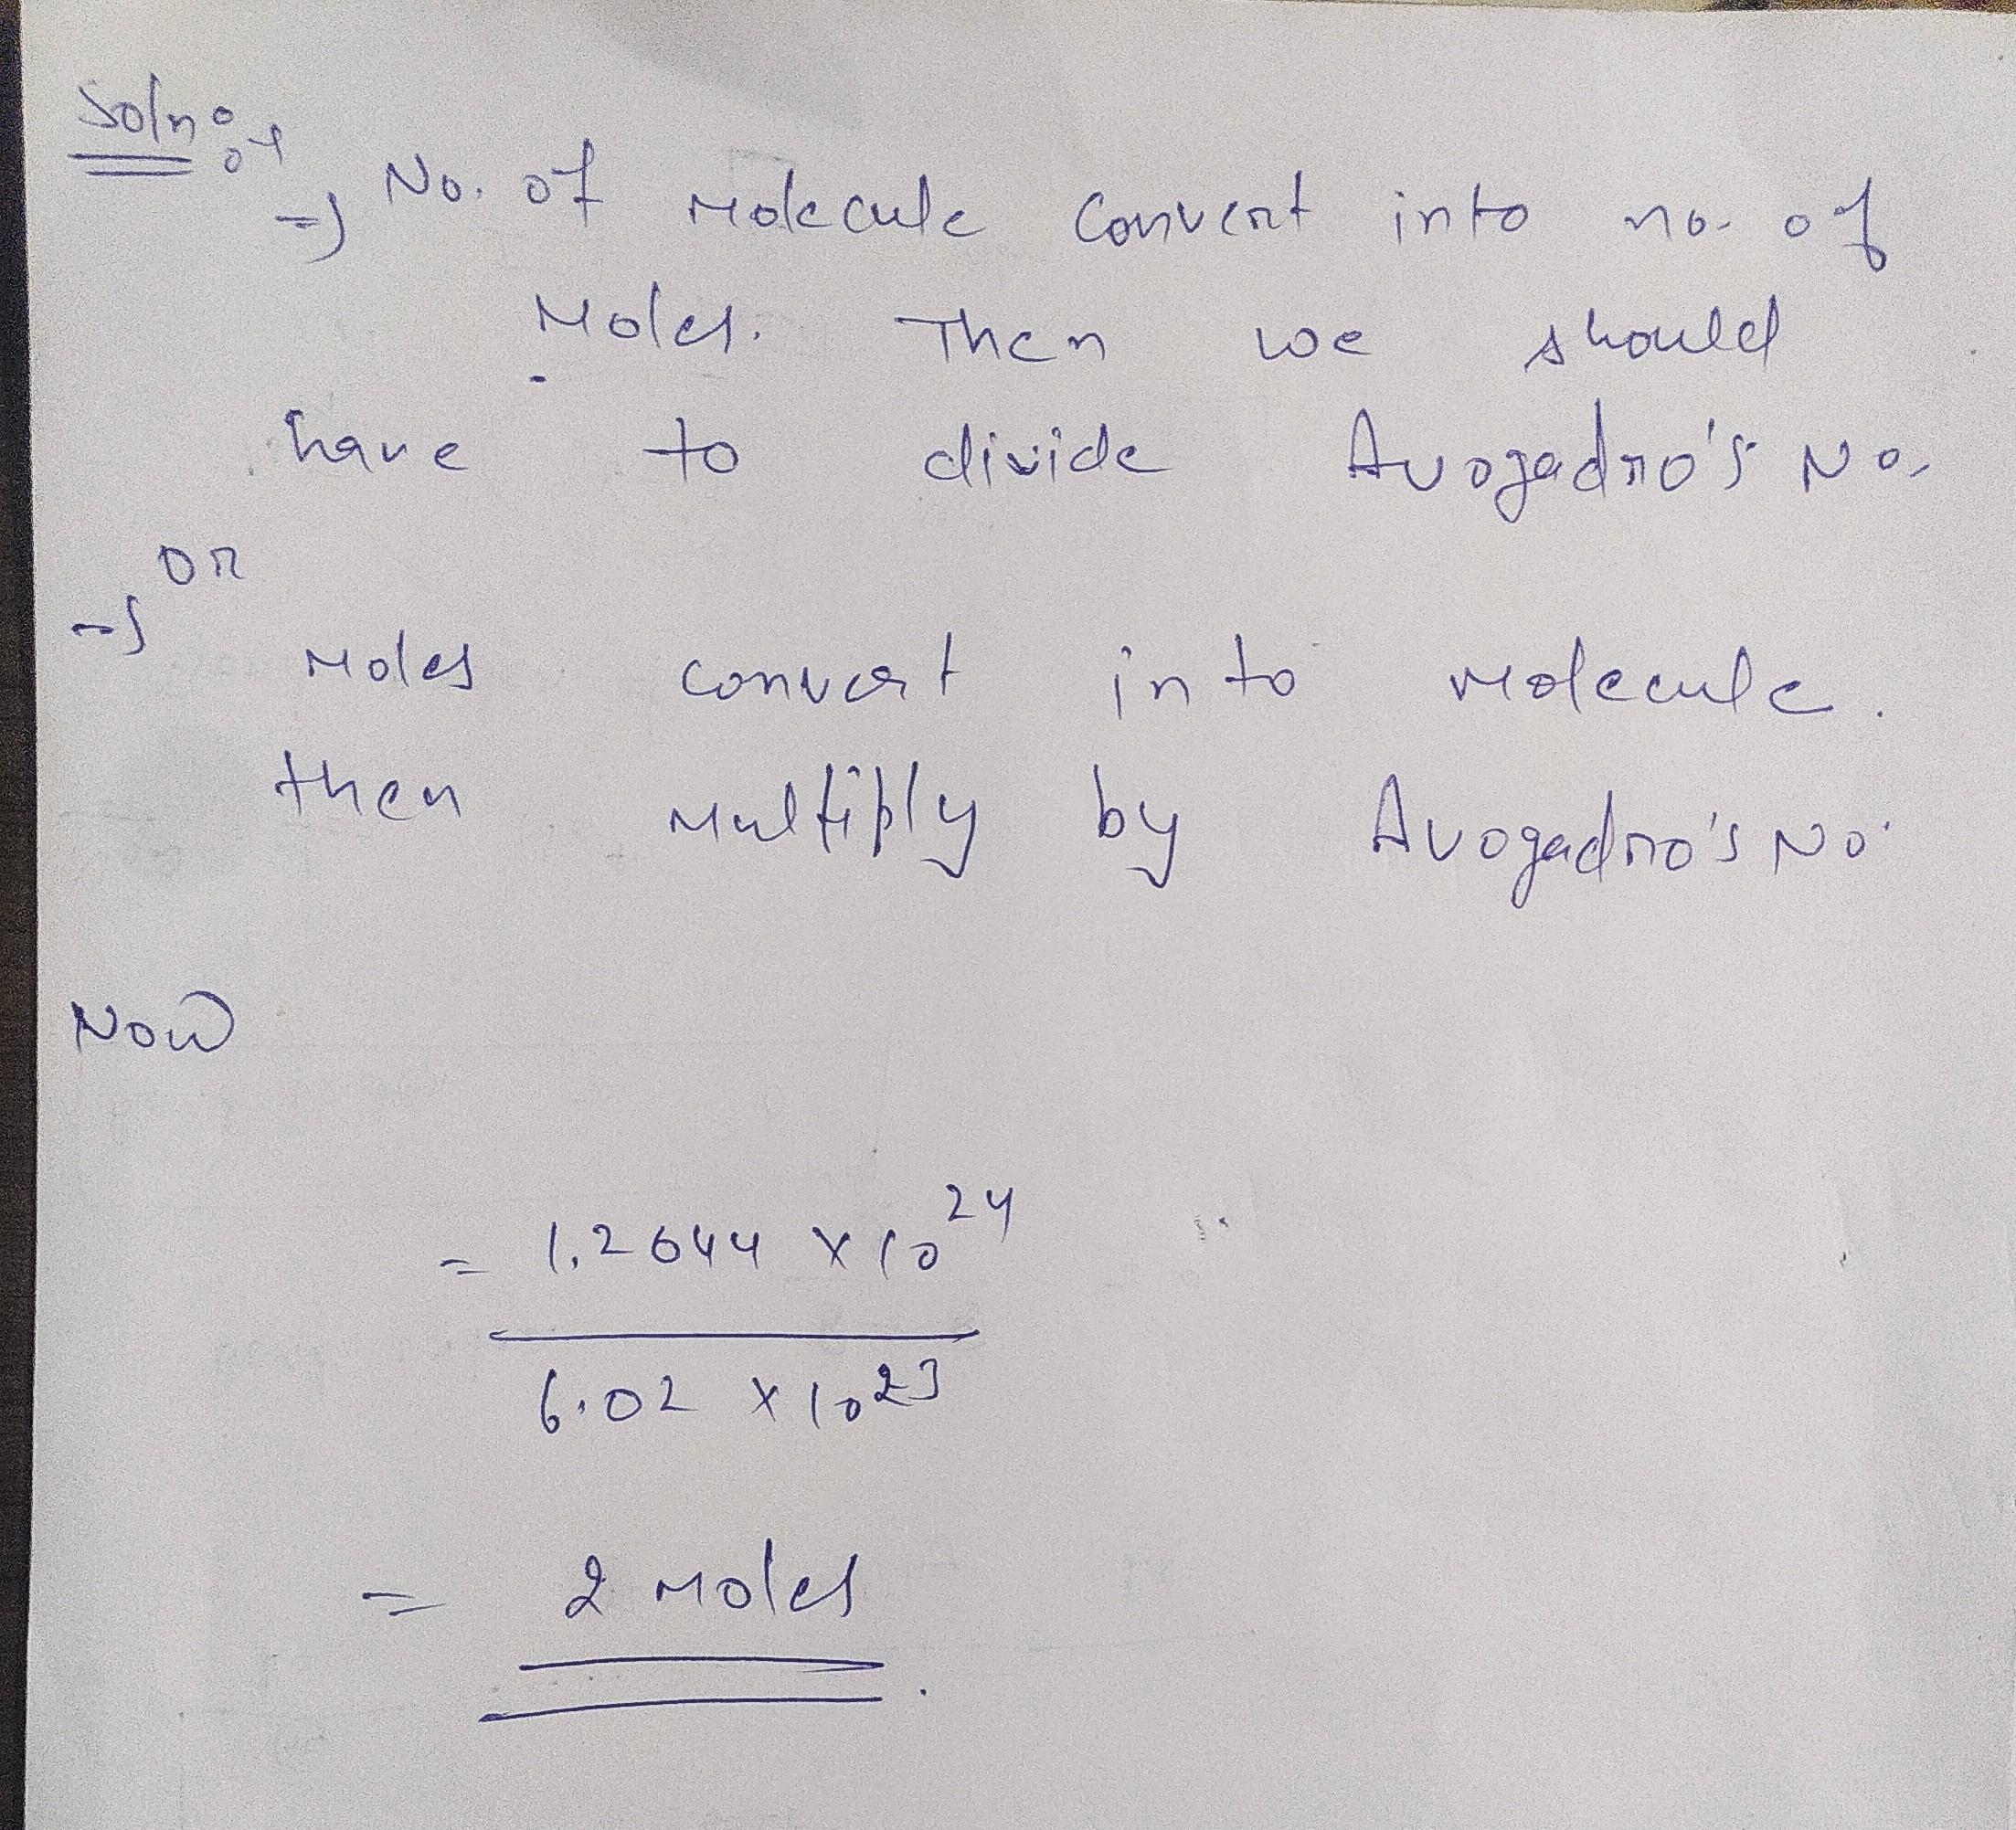 Soln :-
→ No. of Molecule Convert into no. of
Moles. Then we should
have to divide Avogadro's No.
→ or
Moles convert into Molecule.
then Multiply by Avogadro's No.
Now
= 1.2044 × 10²⁴
6.02 × 10²³
= 2 Moles